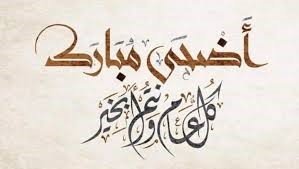 أَضْحَى مُبَارَك
كل عام وأنتم بخير